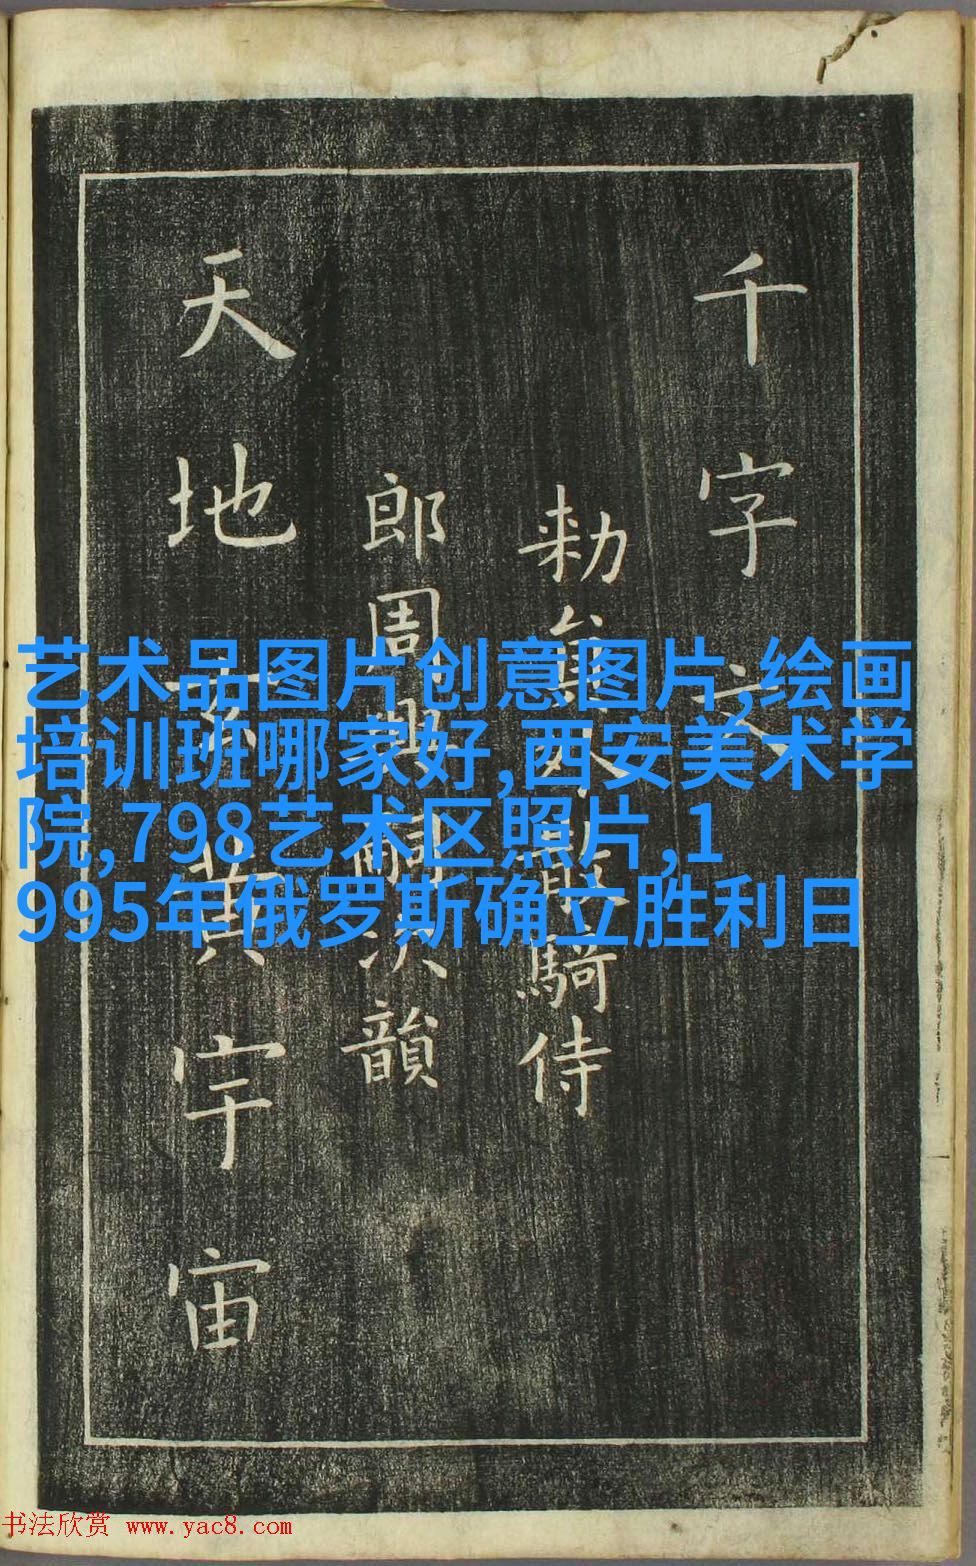 千字文
勑員外散騎侍
郎周興嗣次韻
天地玄黃宇宙
艺术品图片创意图片,绘画
培训班哪家好,西安美术学
院,798艺术区照片,1
995年俄罗斯确立胜利日
书法欣赏 www.yac8.com